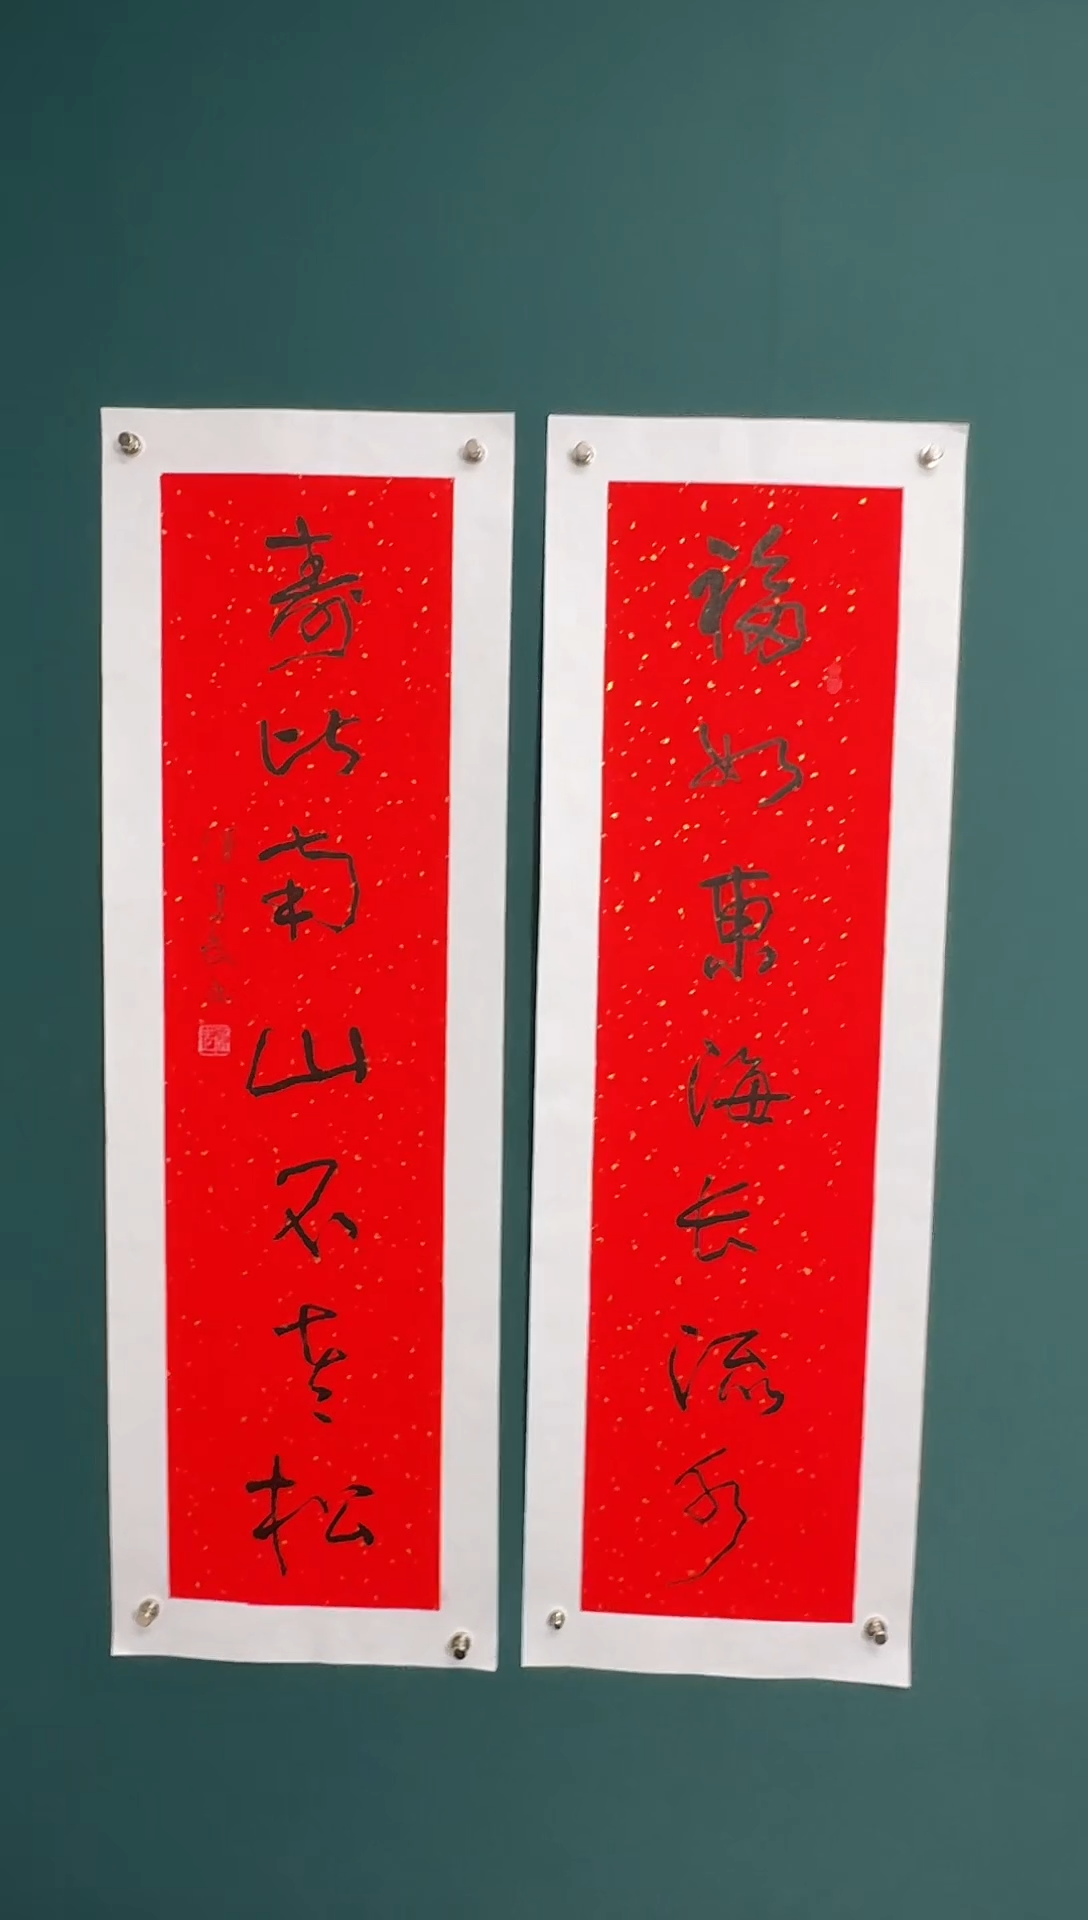 福如東海长流水
寿比南山不老松